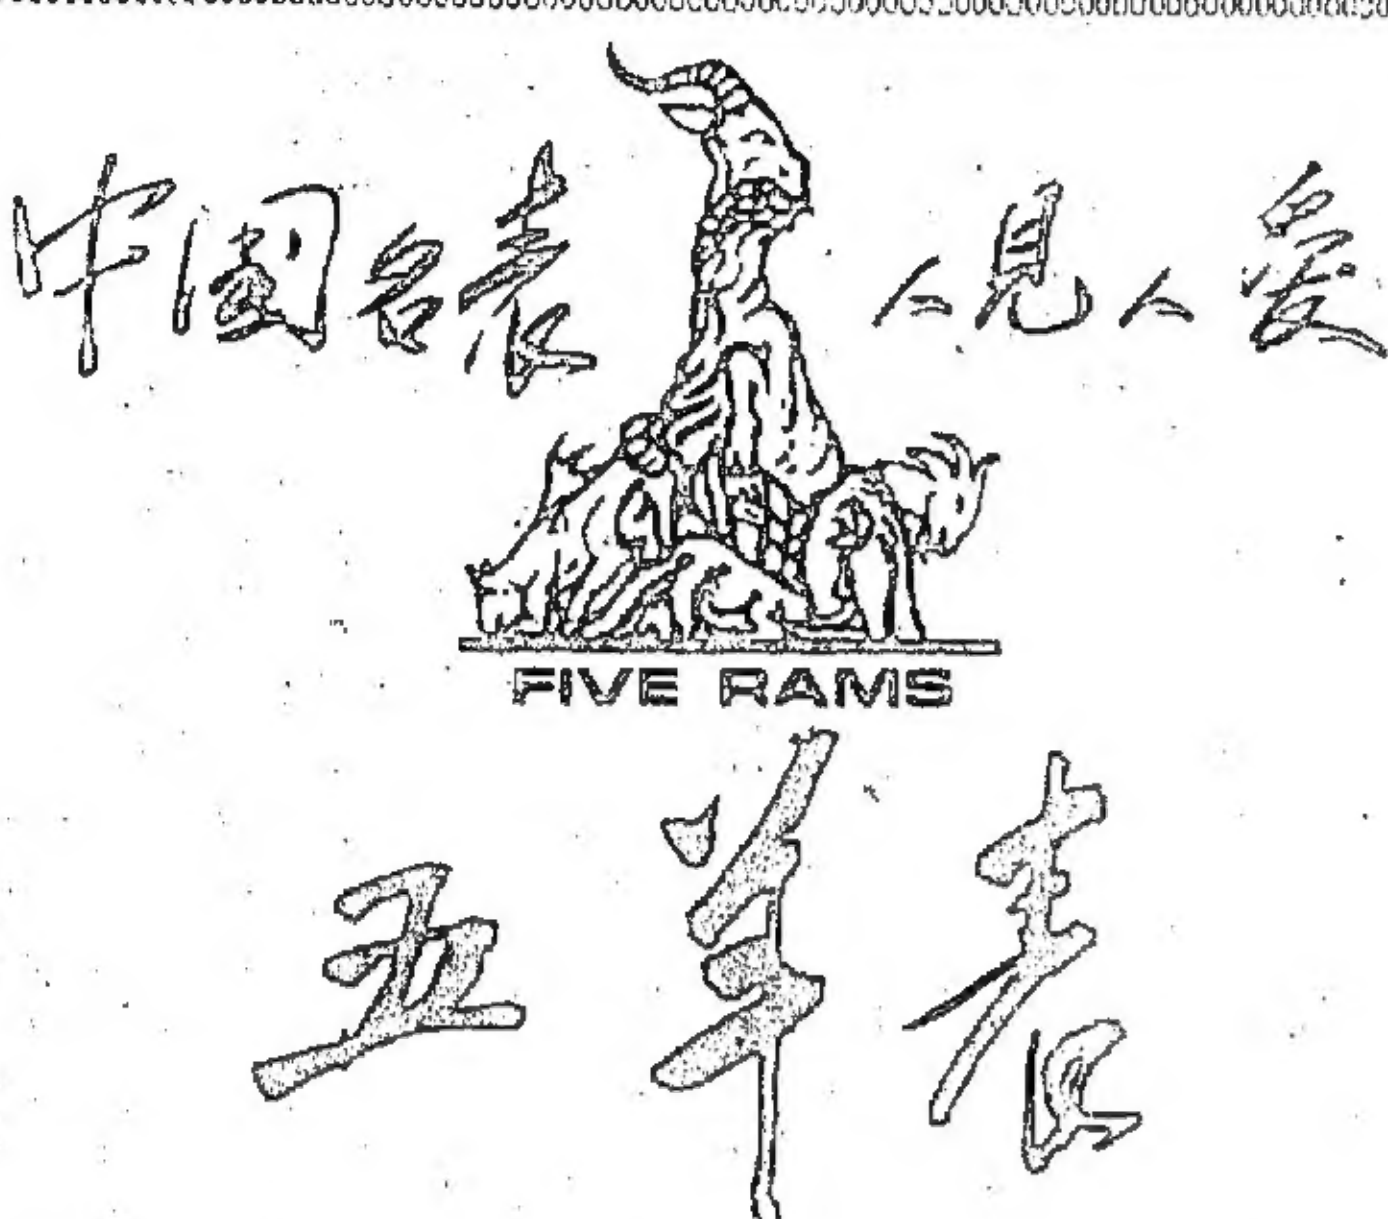 中国名表 人见人爱
FIVE RAMS
五羊表